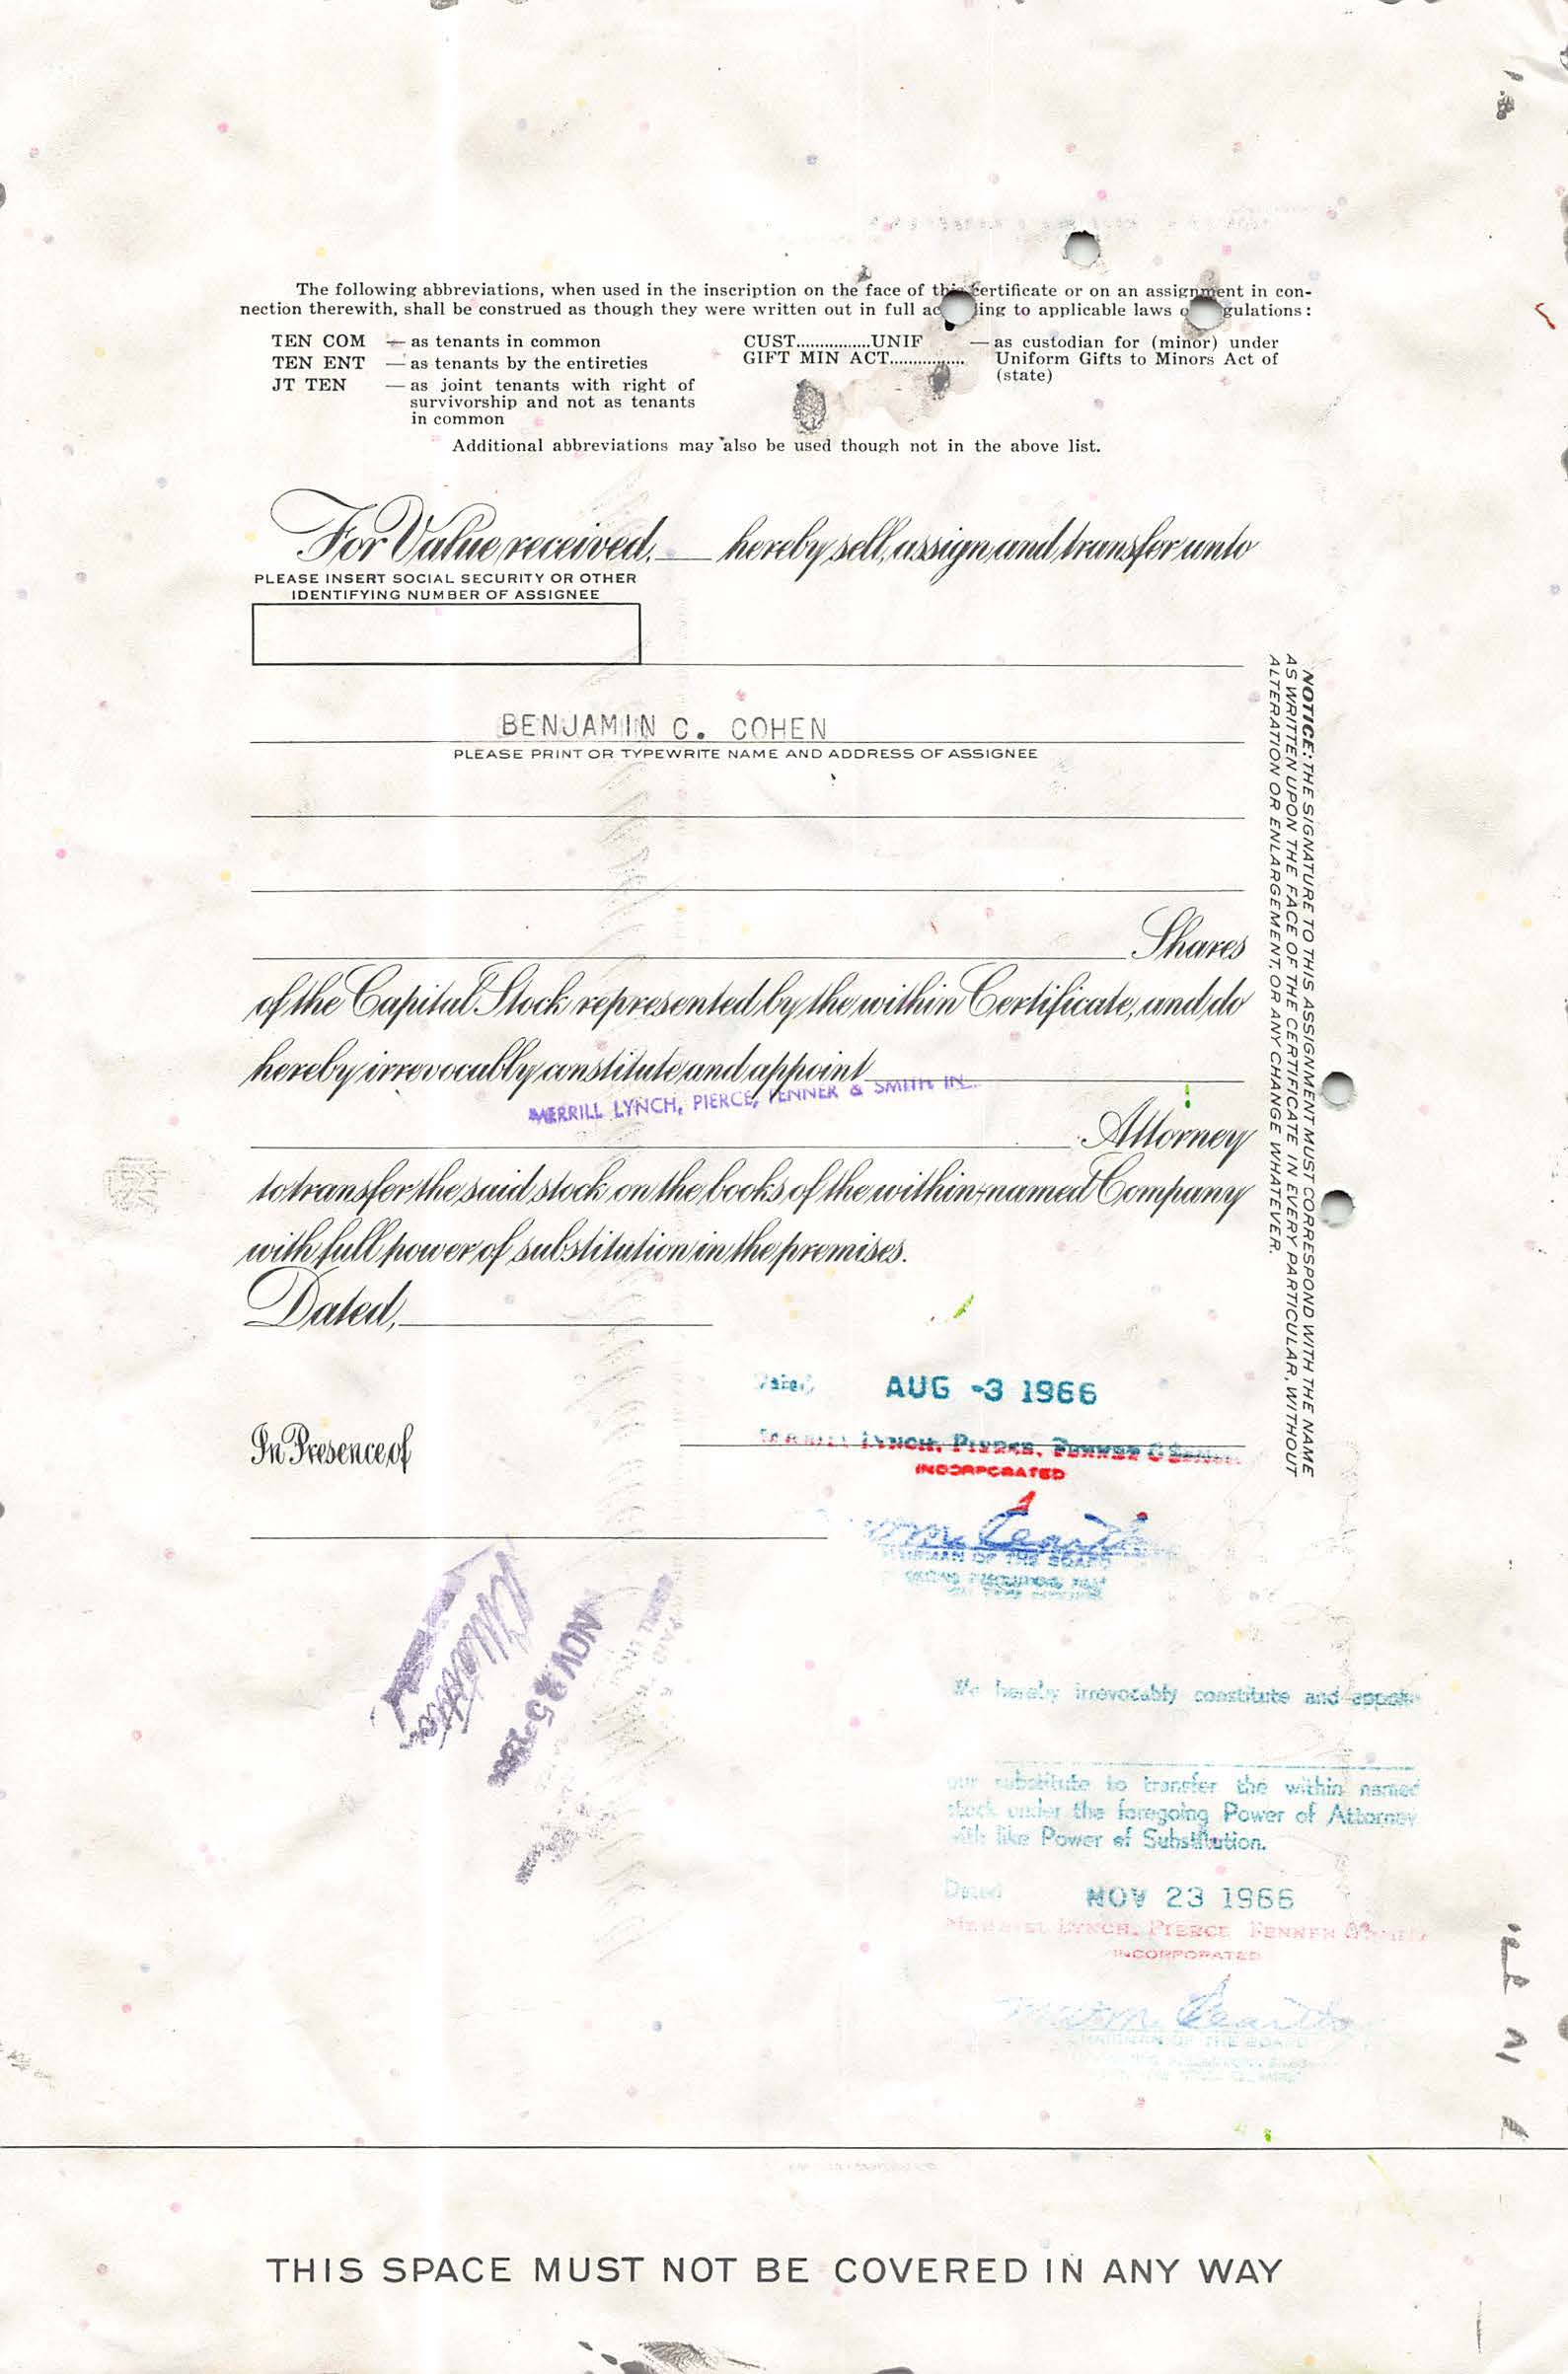 The following abbreviations, when used in the inscription on the face of this certificate or on an assignment in con-
nection therewith, shall be construed as though they were written out in full ac ing to applicable laws o gulations:
TEN COM — as tenants in common
TEN ENT — as tenants by the entireties
JT TEN — as joint tenants with right of
survivorship and not as tenants
in common
CUST................UNIF — as custodian for (minor) under
GIFT MIN ACT................ Uniform Gifts to Minors Act of
(state)
Additional abbreviations may also be used though not in the above list.
For Value received, ___ hereby sell, assign and transfer unto
PLEASE INSERT SOCIAL SECURITY OR OTHER
IDENTIFYING NUMBER OF ASSIGNEE
BENJAMIN C. COHEN
PLEASE PRINT OR TYPEWRITE NAME AND ADDRESS OF ASSIGNEE
Shares
of the Capital Stock represented by the within Certificate, and do
hereby irrevocably constitute and appoint
MERRILL LYNCH, PIERCE, FENNER & SMITH INC.
Attorney
to transfer the said stock on the books of the within-named Company
with full power of substitution in the premises.
Dated,
NOTICE: THE SIGNATURE TO THIS ASSIGNMENT MUST CORRESPOND WITH THE NAME
AS WRITTEN UPON THE FACE OF THE CERTIFICATE IN EVERY PARTICULAR, WITHOUT
ALTERATION OR ENLARGEMENT, OR ANY CHANGE WHATEVER.
Dated AUG -3 1966
In Presence of
MERRILL LYNCH, PIERCE, FENNER & SMITH
INCORPORATED
CHAIRMAN OF THE BOARD
NOV 25
We hereby irrevocably constitute and appoint
our substitute to transfer the within named
stock under the foregoing Power of Attorney
with like Power of Substitution.
Dated NOV 23 1966
MERRILL LYNCH, PIERCE FENNER & SMITH
INCORPORATED
CHAIRMAN OF THE BOARD
THIS SPACE MUST NOT BE COVERED IN ANY WAY